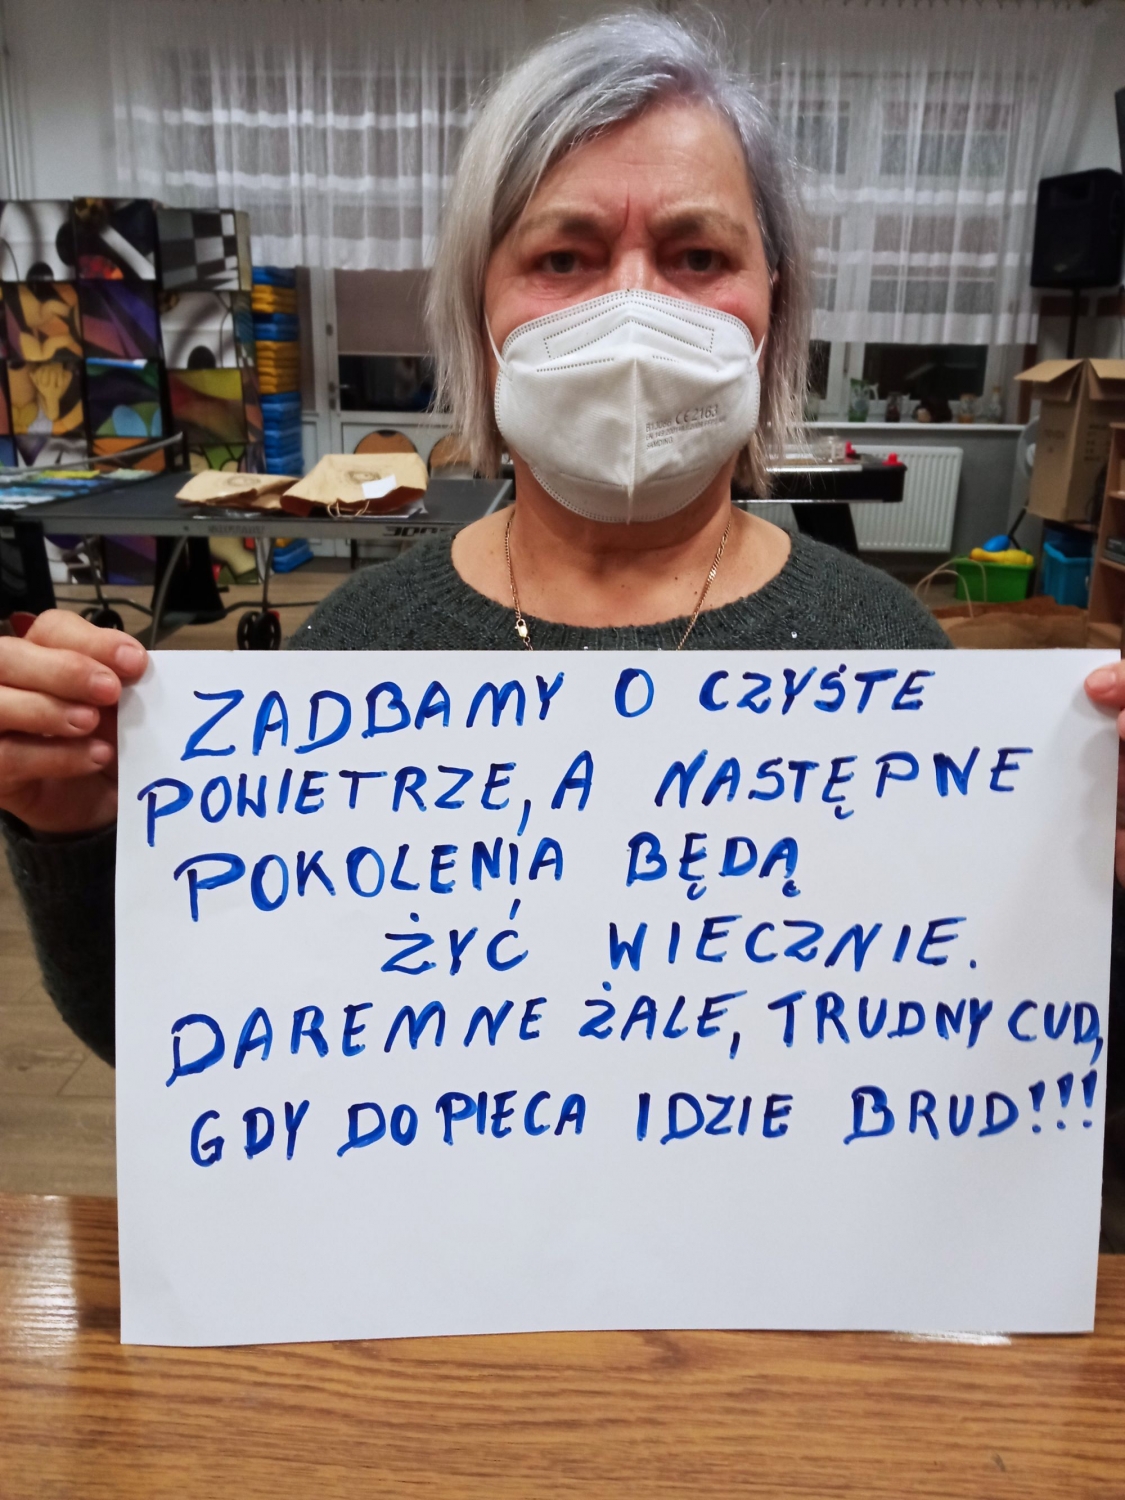 CE 2163
ZADBAMY O CZYSTE
POWIETRZE, A NASTĘPNE
POKOLENIA BĘDĄ
ŻYĆ WIECZNIE.
DAREMNE ŻALE, TRUDNY CUD,
GDY DO PIECA IDZIE BRUD!!!